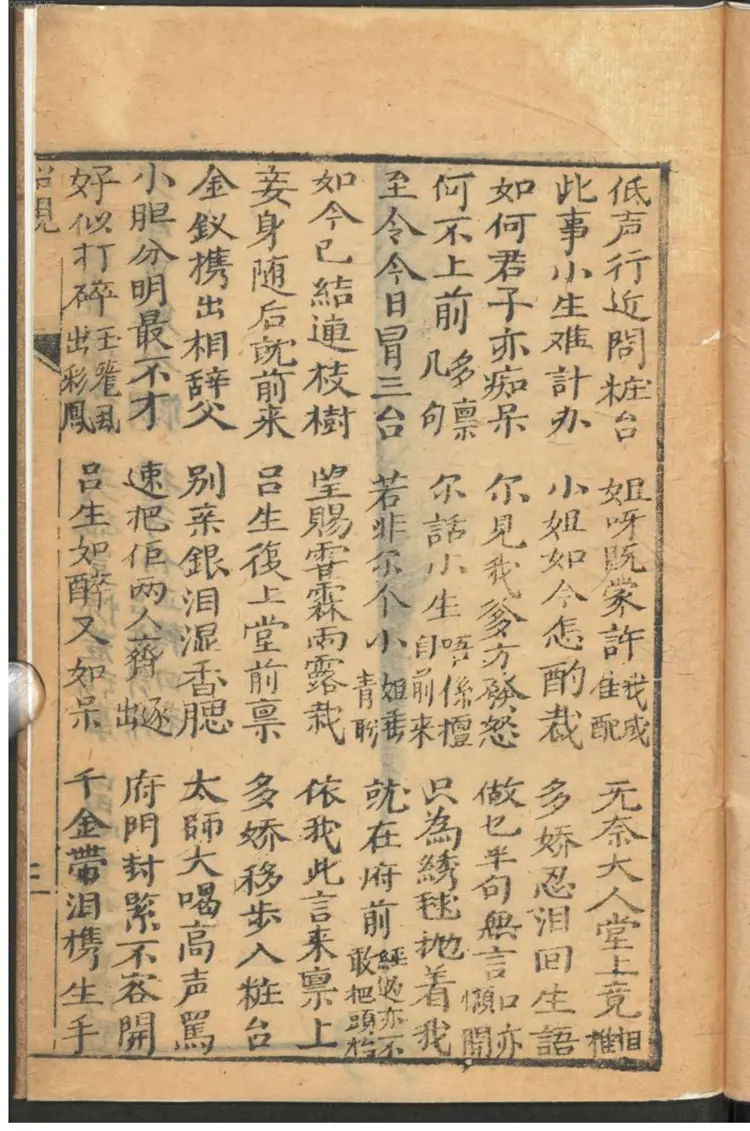 低声行近問粧台 姐呀既蒙許我成佳配 无奈大人堂上竟相推
此事小生难計办 小姐如今怎酌裁 多娇忍泪回生語
如何君子亦痴呆 尔見我爹方發怒 做乜半句無言口亦懒開
何不上前多禀几句 尔話小生唔係擅自前来 只為綉毬抛着我
至令今日冒三台 若非尔个小姐垂青盼 就在府前經過亦不敢把頭抬
如今已結連枝樹 望賜霖雨露栽 依我此言来禀上
妾身随后就前来 吕生復上堂前禀 多娇移步入粧台
金釵携出相辞父 别亲銀泪湿香腮 太師大喝高声罵
小胆分明最不才 速把佢两人齊逐出 府門封緊不容開
好似打碎玉篭出彩鳳 吕生如醉又如呆 千金帶泪携生手
三